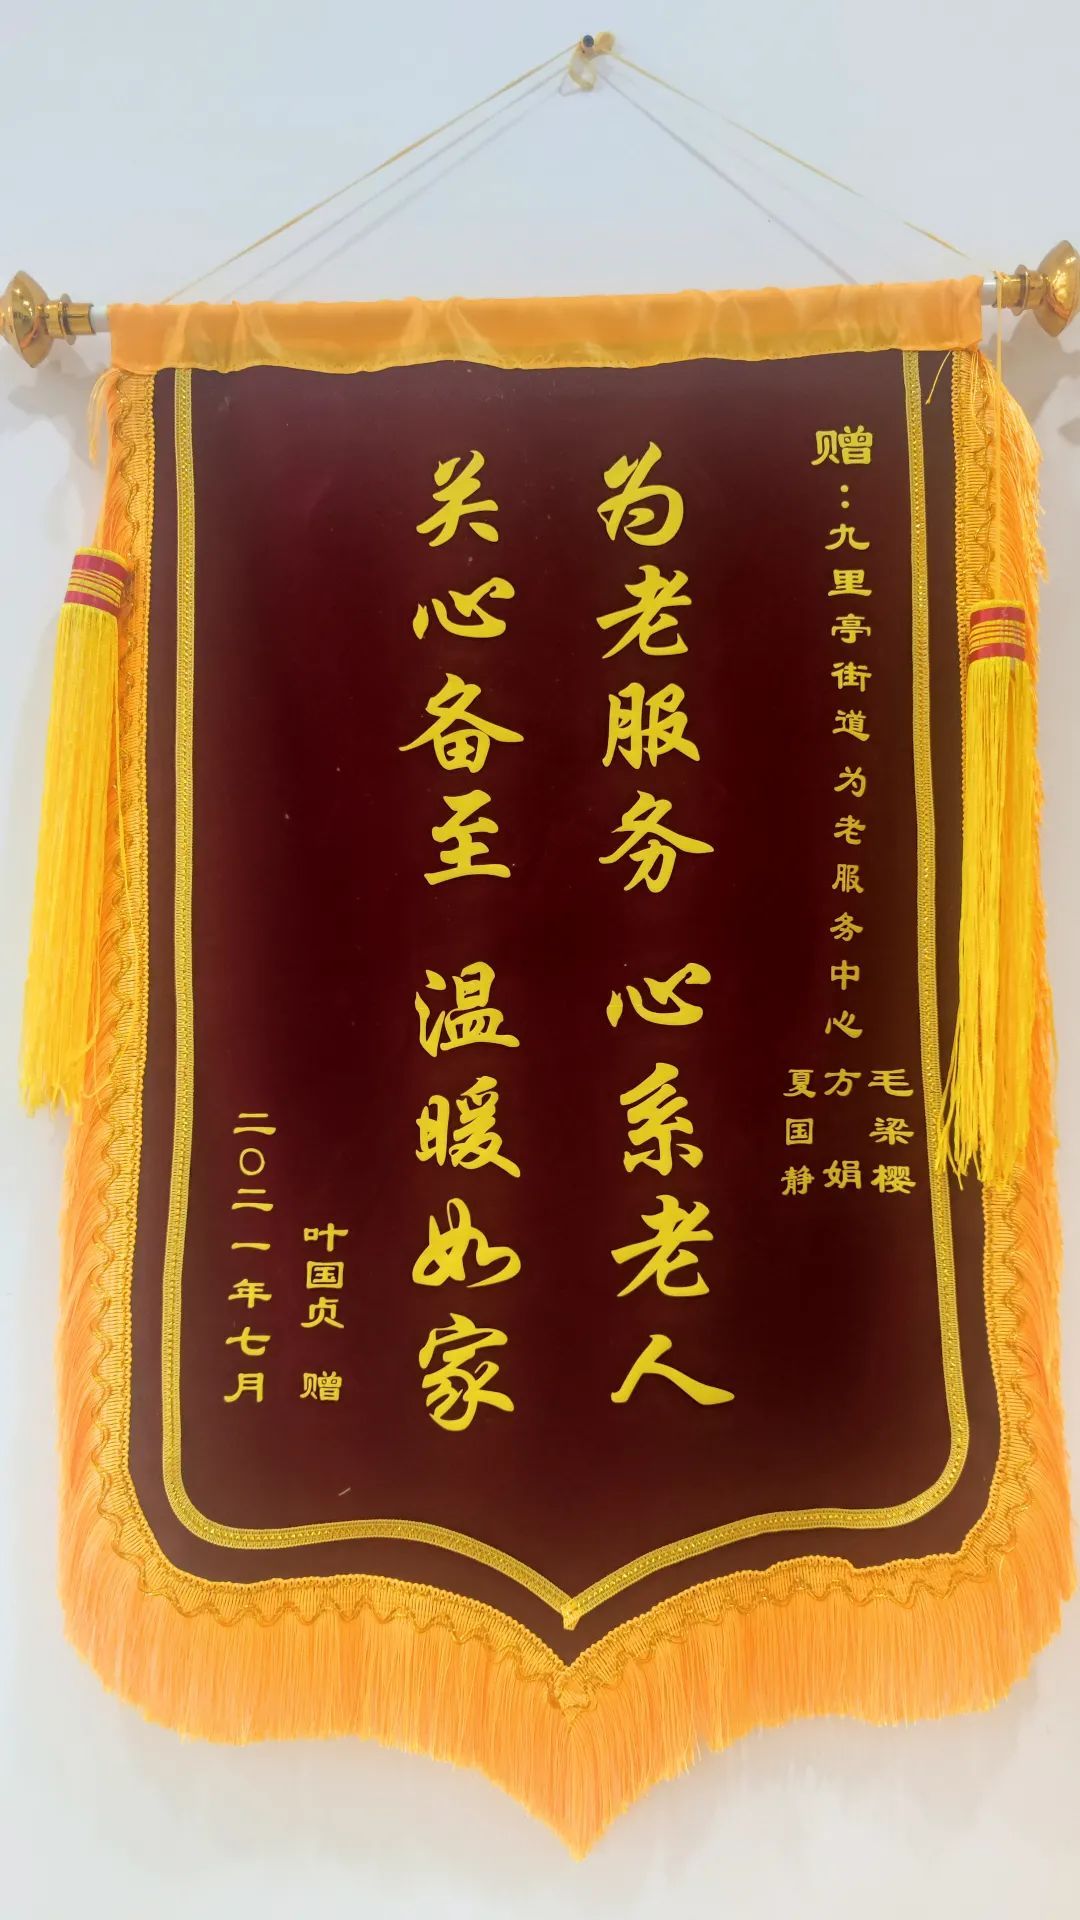 赠：九里亭街道为老服务中心
毛梁樱
方娟
夏国静
为老服务 心系老人
关心备至 温暖如家
叶国贞 赠
二〇二一年七月